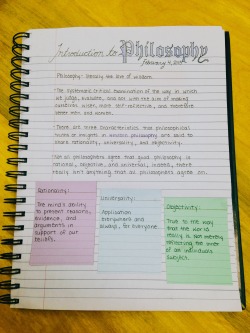 Introduction to Philosophy
February 4, 20
Philosophy: literally the love of wisdom.
· The systematic critical examination of the way in which
we judge, evaluate, and act with the aim of making
ourselves wiser, more self-reflective, and therefore
better men and women.
· There are three characteristics that philosophical
truths or insights in western philosophy are said to
share: rationality, universality, and objectivity.
· Not all philosophers agree that good philosophy is
rational, objective, and universal; indeed, there
really isn't anything that all philosophers agree on.
Rationality:
The mind's ability
to present reasons,
evidence, and
arguments in
support of our
beliefs.
Universality:
Application
everywhere and
always, for everyone.
Objectivity:
True to the way
that the world
really is, not merely
reflecting the
of an individual
subject.